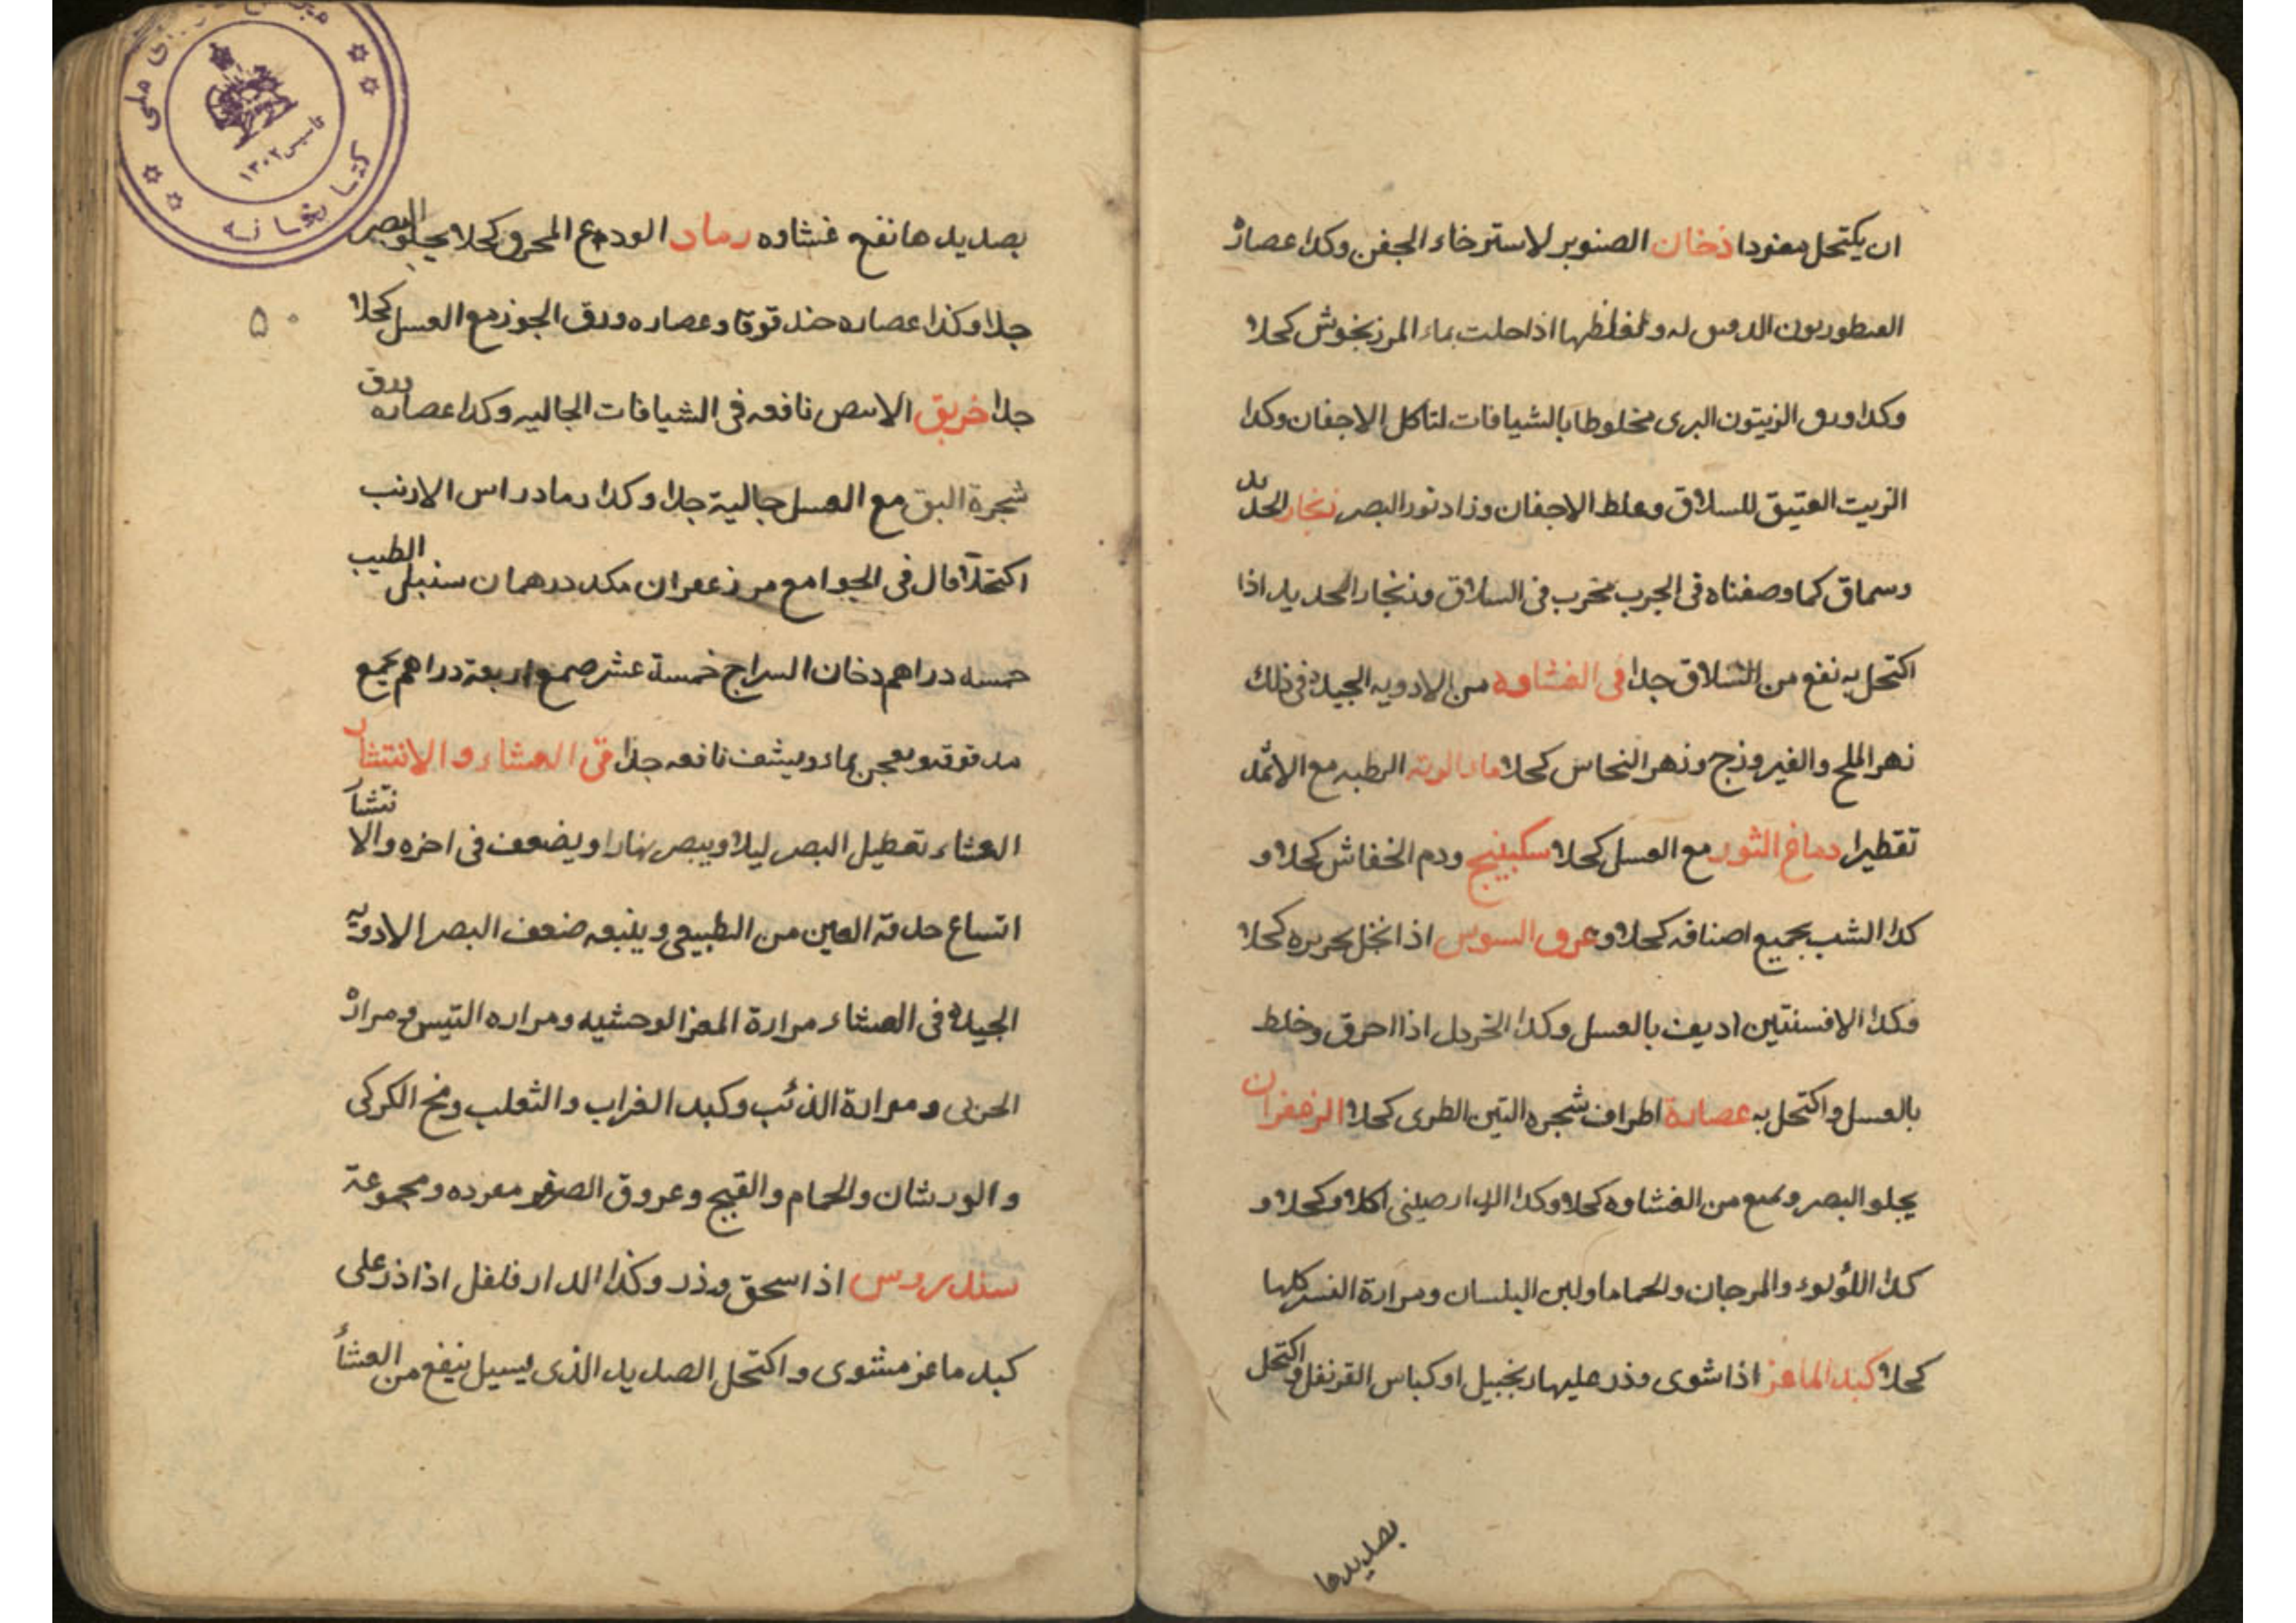 ان يكتحل مفردا دخان الصنوبر لاسترخاء الجفن وكدا عصارة
القنطوريون الدقيق له ولغلظها اذا حلت بماء المرزنجوش كحلا
وكدا ورق الزيتون البرى مخلوطا بالشيافات لتاكل الاجفان وكدا
الزيت العتيق للسلاق وغلط الاجفان وزاد نور البصر زنجار الحديد
وسماق كما وصفناه فى الجرب مجرب فى السلاق وزنجار الحديد اذا
اكتحل به نفع من السلاق جدا فى الغشاوه من الادويه الجيدة فى ذلك
زهر الملح والفيروزج وزهر النحاس كحلا ماء الرطبه مع الاثمد
تقطيرا دماغ الثور مع العسل كحلا سكبينج ودم الخفاش كحلا و
كدا الشب بجميع اصنافه كحلا وعرق السوس اذا نخل بحريره كحلا
وكدا الافسنتين اديف بالعسل وكدا الخردل اذا احرق وخلط
بالعسل واكتحل به عصارة اطراف شجره التين الطرى كحلا الزعفران
يجلو البصر ويمنع من الغشاوه كحلا وكدا الدارصينى اكلا وكحلا و
كدا اللؤلوء والمرجان والحماما ولبن البلسان ومرارة النسر كلها
كحلا كبد الماعز اذا شوى وذر عليها زنجبيل او كباس القرنفل واكتحل
بصديدها
بصديدها نفع غشاوه رماد الودع المحرق كحلا يجلو البصر
جدا وكذا عصاره حندقوقا وعصاره ورق الجوز مع العسل كحلا
جدا خربق الابيض نافعه فى الشيافات الجاليه وكدا عصاره ورق
شجرة البق مع العسل جالية جدا وكدا رماد راس الارنب
اكتحلا قال فى الجوامع مر زعفران مكد درهمان سنبل الطيب
خمسه دراهم دخان السراج خمسة عشر صمغ اربعة دراهم يجمع
مدقوقه ويعجن بماء ويشف نافعه جدا فى العشاء والانتشار
العشاء تعطيل البصر ليلا ويبصر نهارا ويضعف فى اخره والانتشار
اتساع حدقة العين من الطبيعى ويتبعه ضعف البصر الادويه
الجيدة فى العشاء مرارة المعز الوحشيه ومراره التيس ومرارة
ومرارة الذئب وكبد الغراب والثعلب ومخ الكركى
والورشان والحمام والقبج وعروق الصفر مفرده ومجموعة
سندروس اذا سحق وذر وكذا الدارفلفل اذا ذر على
كبد ماعز مشوى واكتحل الصديد الذى يسيل ينفع من العشأ
٥٠
ملى
كتابخانه
تاسيس ١٣٠٢